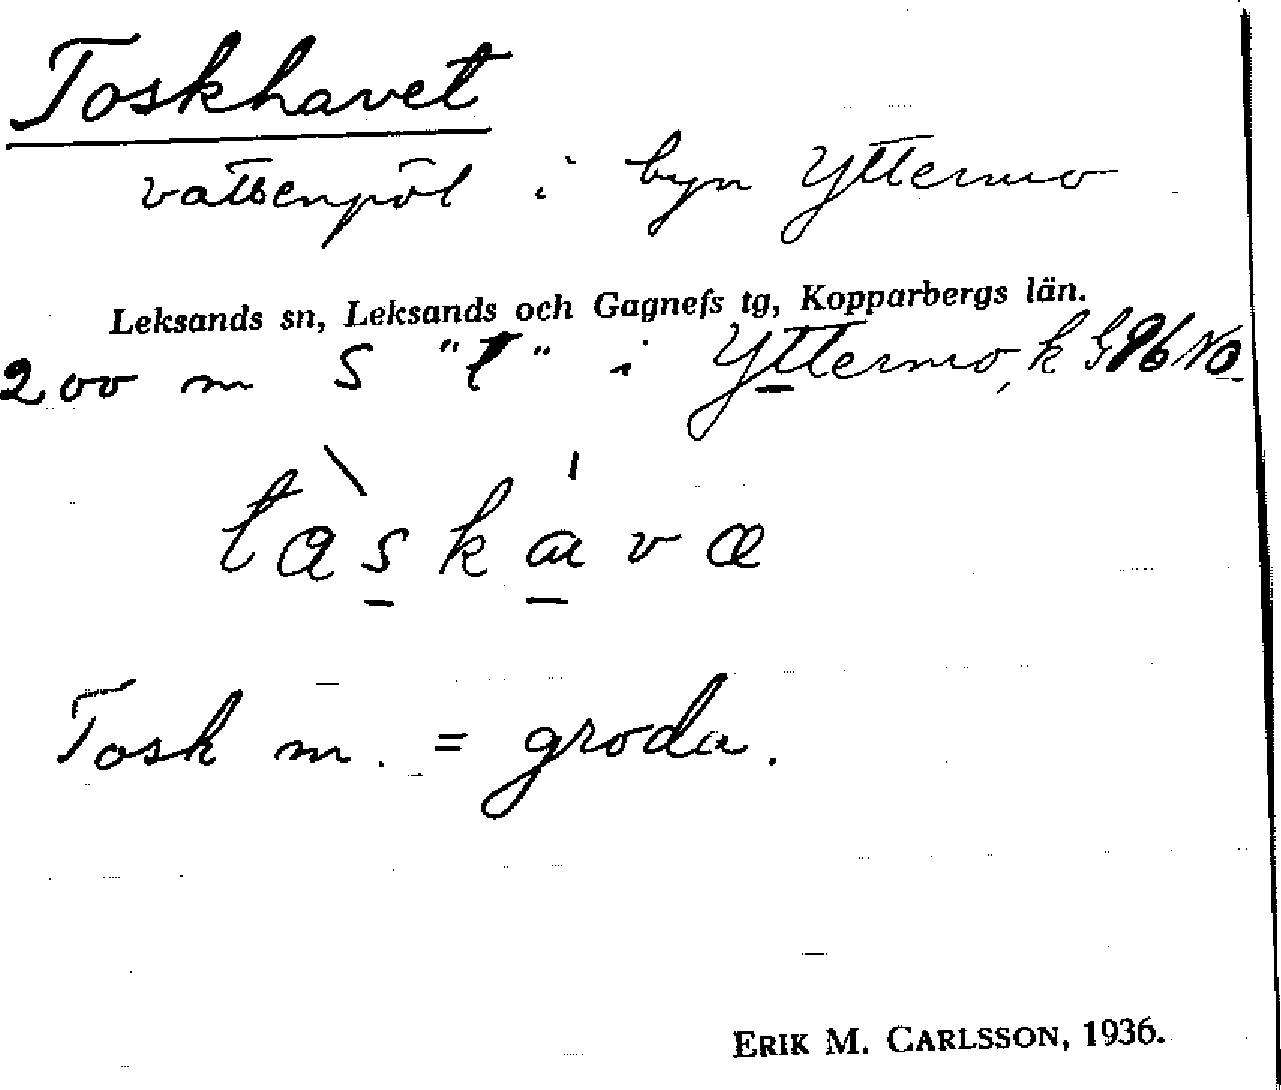 Toskhavet
vattenpöl i byn Yttermo
Leksands sn, Leksands och Gagnefs tg, Kopparbergs län.
200 m S "t" i Yttermo, k G 86 No
tàskávæ
Tosk m. = groda.
ERIK M. CARLSSON, 1936.